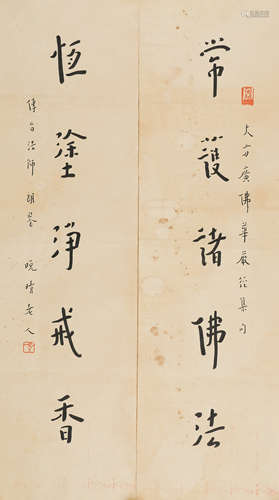 大方廣佛華嚴經集句
常護諸佛法
恆塗淨戒香
法師 晚晴老人